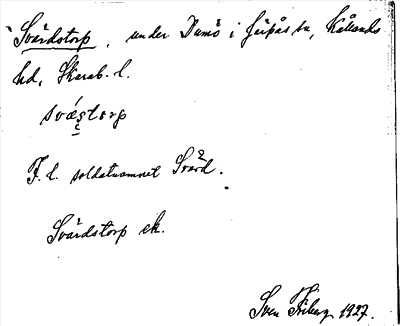 Svärdstorp, under Damö i Järpås sn, Kållands
hd, Skarab. l.
svástorp
F. d. soldatnamnet Svärd.
Svärdstorp ek.
Sven Friberg 1927.